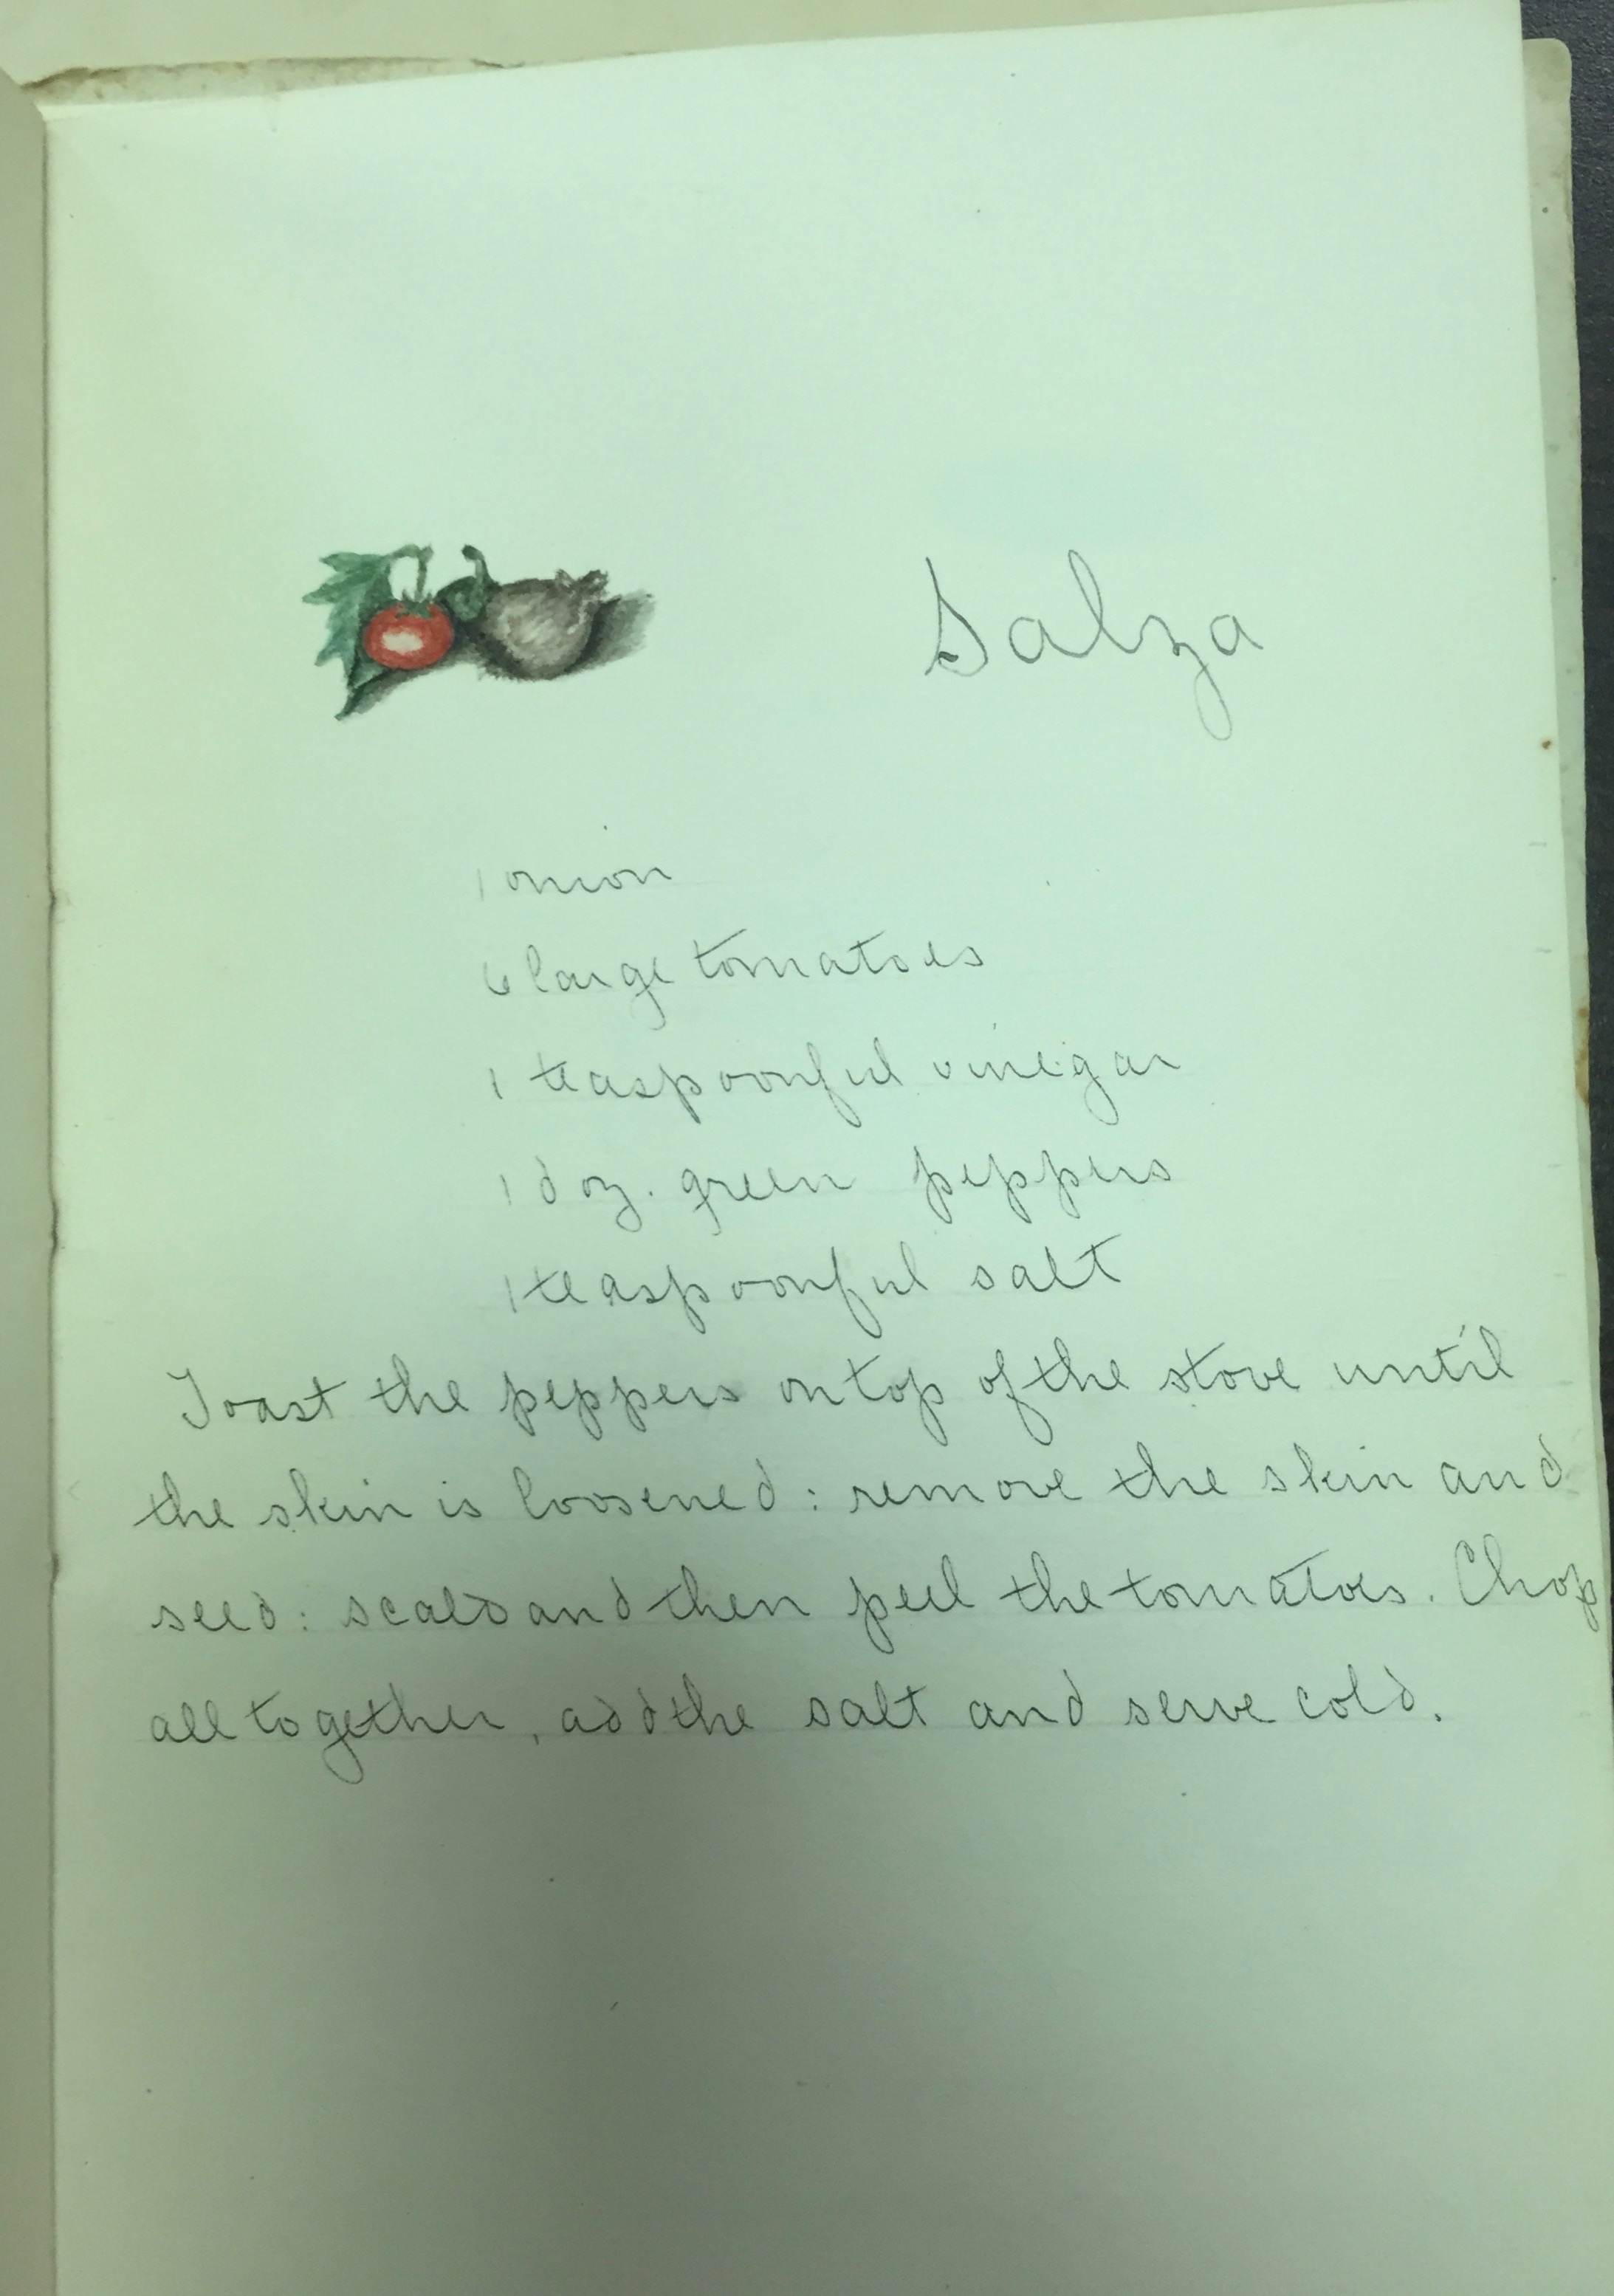 Salza
1 onion
6 large tomatoes
1 teaspoonful vinegar
1 doz. green peppers
1 teaspoonful salt
Toast the peppers on top of the stove until
the skin is loosened: remove the skin and
seed: scald and then peel the tomatoes. Chop
all together, add the salt and serve cold.